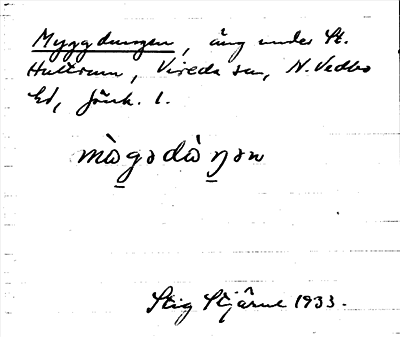 Myggdungen, äng under St.
Hultrum, Vireda sn, N. Vedbo
hd, Jönk. l.
mò̱gədò̱ŋən
Stig Stjärne 1933.